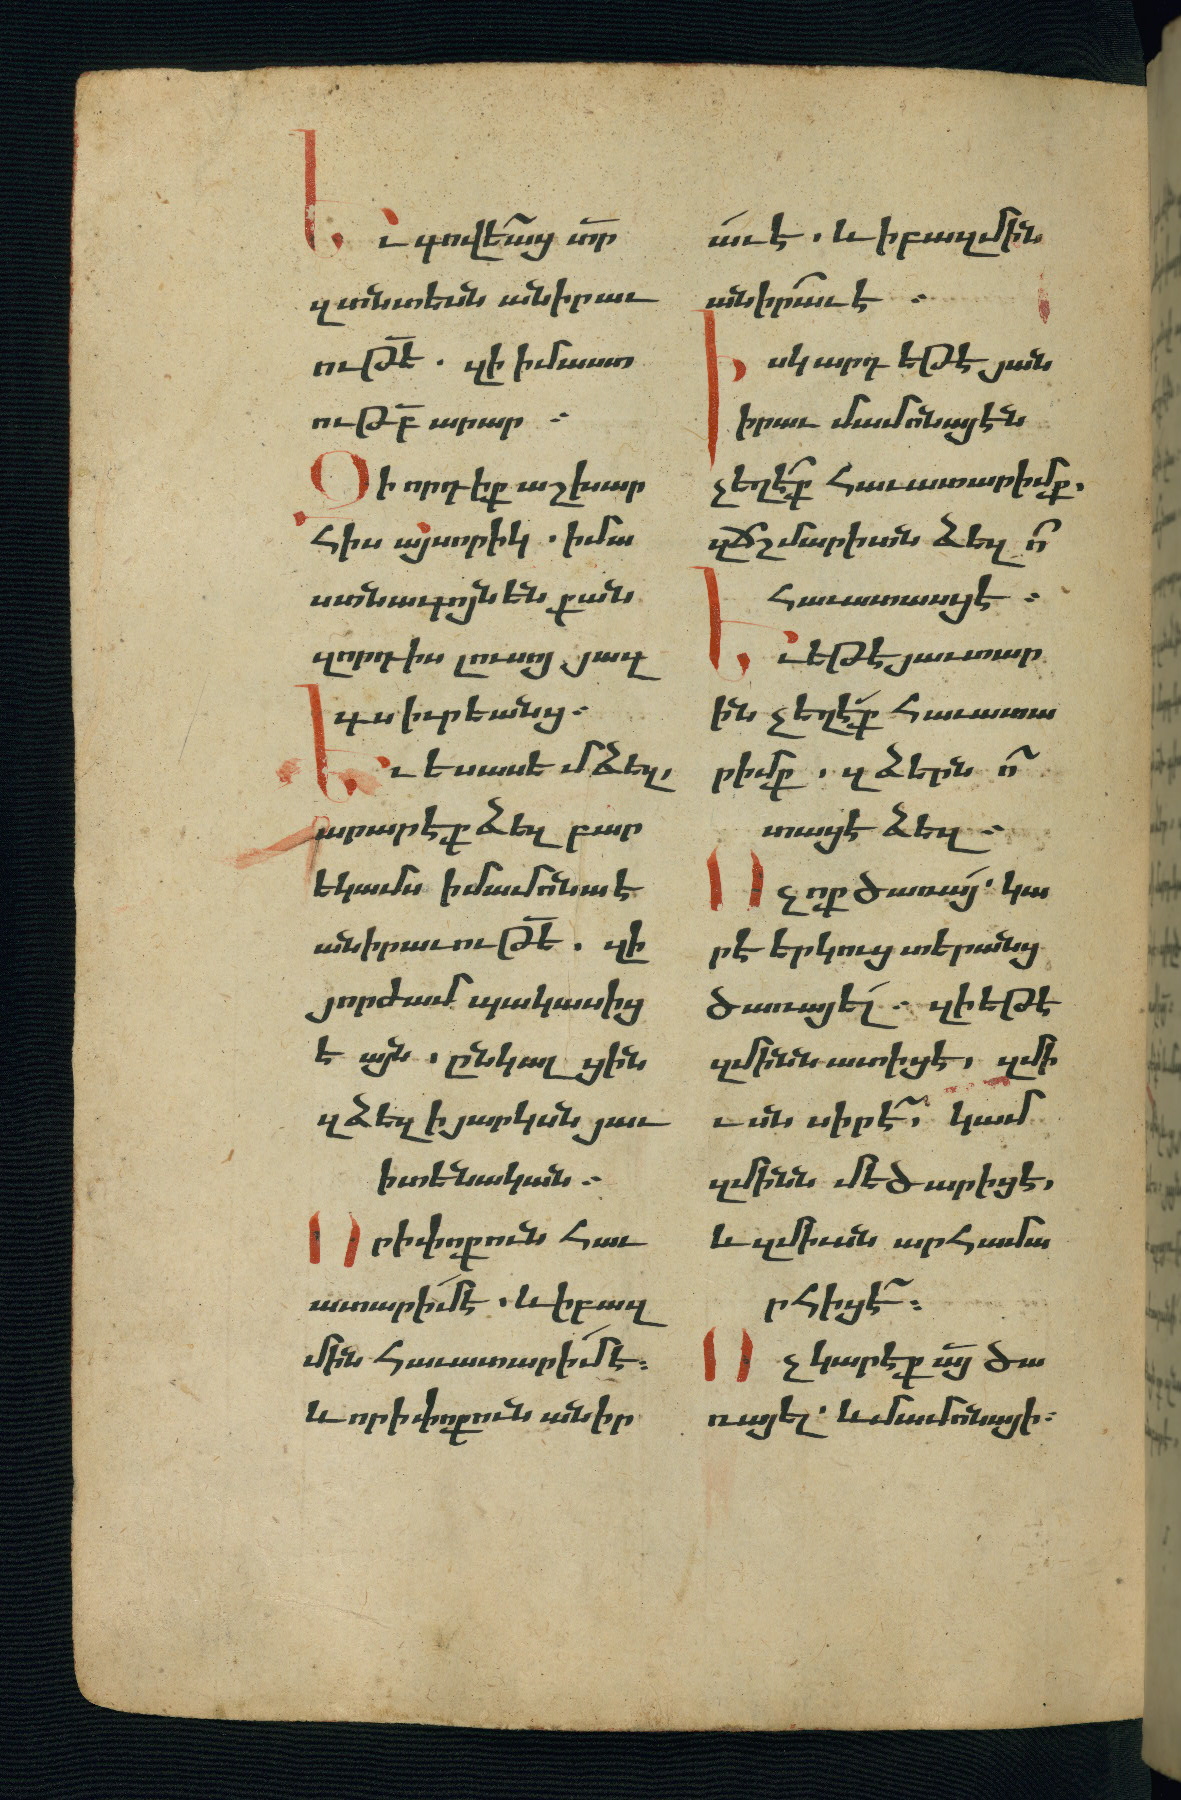 Եւ գովեաց տ̅ր
զտնտեսն անիրաւ
ութե̅ . զի իմաստ
ութբ̅ արար ։
Զի որդիք աշխար
հիս այսորիկ . իմա
ստնագոյն են քան
զորդիս լուսոյ յազ
գս իւրեանց ։
Եւ ես ասեմ ձեզ,
արարէք ձեզ բար
եկամս ի մամոնաէ
անիրաւութե̅ . զի
յորժամ պակասից
է այն . ընկալ ցին
զձեզ ի յարկսն յաւ
իտենական ։
Որ ի փոքուն հաւ
ատարիմ է . և ի բազ
մին հաւատարիմ է ։
և որ ի փոքուն անիր
աւ է . և ի բազմին
անիրաւ է ։
Իսկ արդ եթէ յան
իրաւ մամոնայէն
չեղէք հաւատարիմք .
զճշմարիտն ձեզ ո՞
հաւատասցէ ։
Եւ եթէ յաւտար
ին չեղէք հաւատա
րիմք . զձերն ո՞
տացէ ձեզ ։
Ոչ ոք ծառայ կա
րէ երկուց տերանց
ծառայել ։ զի եթէ
զմինն ատիցէ, զմի
ւսն սիրէ, կամ
զմինն մեծարիցէ,
և զմիւսն արհամա
րհիցէ ։
Ոչ կարէք ա̅յ ծա
ռայել և մամոնայի ։